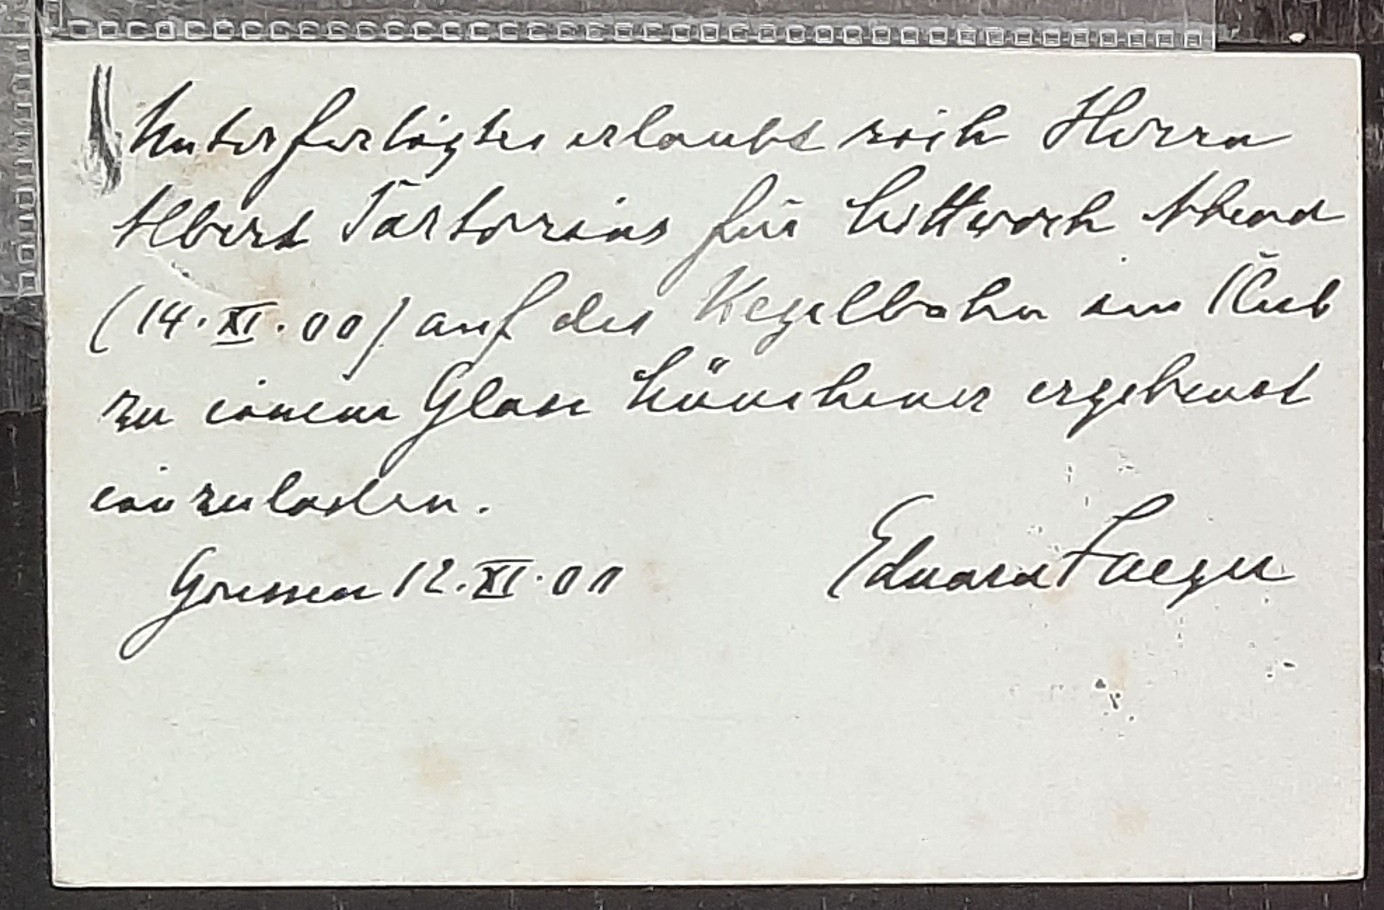 Unterfertigter erlaubt sich Herrn
Albert Sartorius für Mittwoch Abend
(14. XI. 00) auf der Kegelbahn im Club
zu einem Glase Münchener ergebenst
einzuladen.
Giessen 12. XI. 00 Eduard